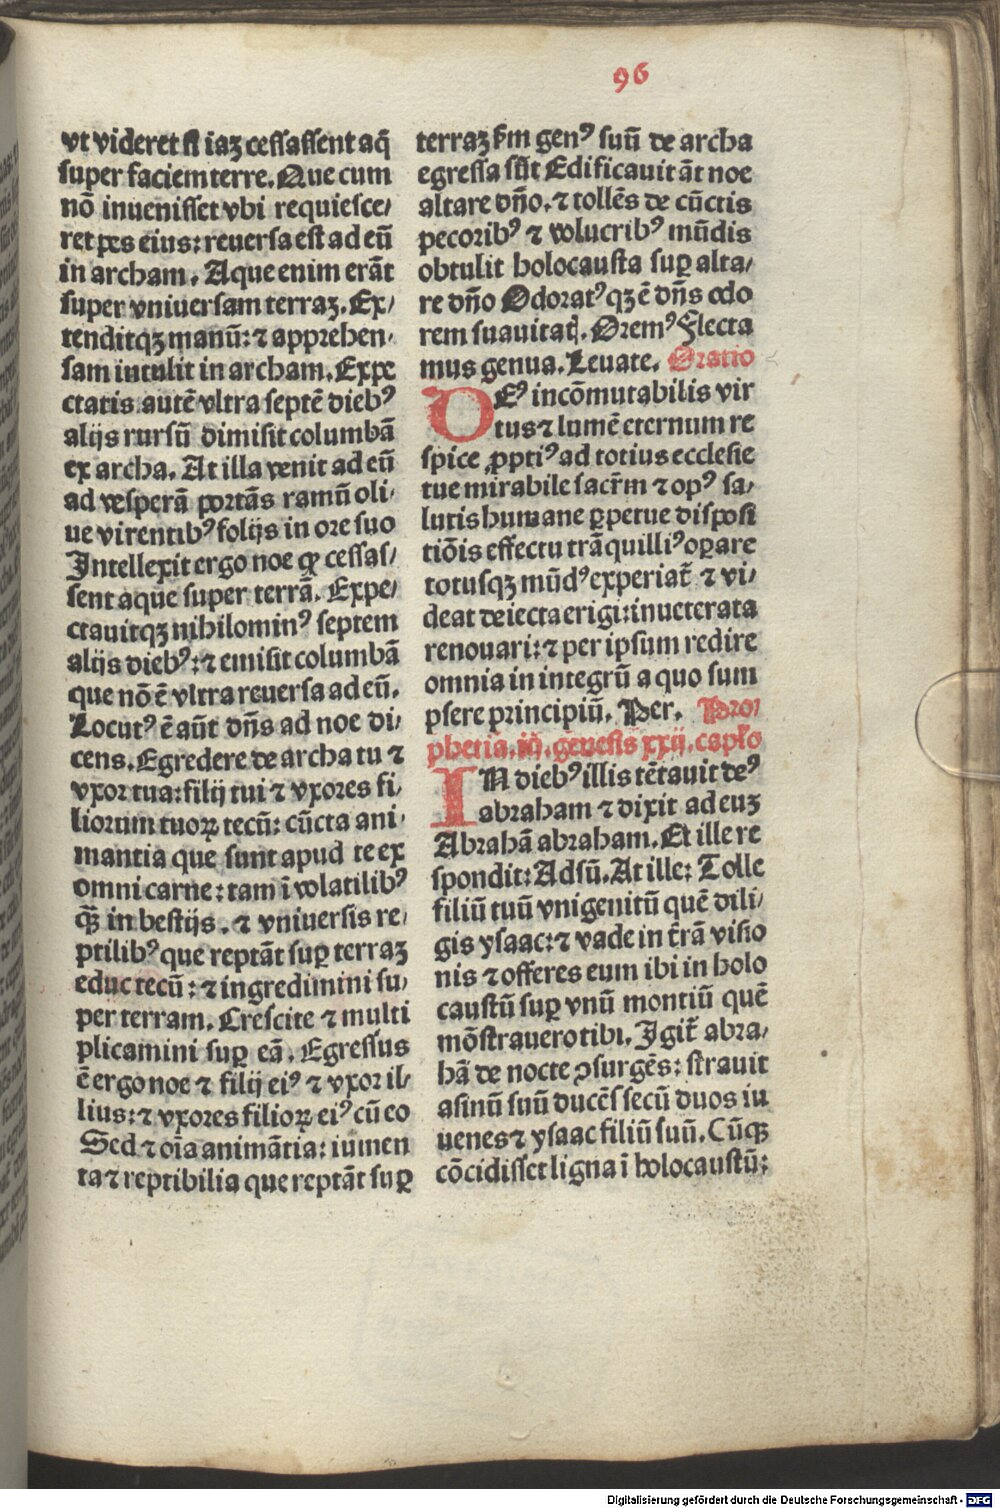 96
vt videret si iaꝫ cessassent aq̄
super faciem terre. Que cum
nō inuenisset vbi requiesce/
ret pes eius: reuersa est ad eū
in archam. Aque enim erāt
super vniuersam terraꝫ. Ex/
tenditqꝫ manū: ⁊ apprehen/
sam intulit in archam. Expe
ctatis autē vltra septē diebꝰ
alijs rursū dimisit columbā
ex archa. At illa venit ad eū
ad vesperā portās ramū oli/
ue virentibꝰ folijs in ore suo
Intellexit ergo noe ꝙ cessas/
sent aque super terrā. Expe/
ctauitqꝫ nihilominꝰ septem
alijs diebꝰ: ⁊ emisit columbā
que nō ē vltra reuersa ad eū.
Locutꝰ ē aūt dn̄s ad noe di/
cens. Egredere de archa tu ⁊
vxor tua: filij tui ⁊ vxores fi/
liorum tuoꝝ tecū: cūcta ani/
mantia que sunt apud te ex
omni carne: tam ī volatilibꝰ
qꝫ̄ in bestijs. ⁊ vniuersis re/
ptilibꝰ que reptāt suꝑ terraꝫ
educ tecū: ⁊ ingredimini su/
per terram. Crescite ⁊ multi
plicamini suꝑ eā. Egressus
ē ergo noe ⁊ filij eiꝰ ⁊ vxor il/
lius: ⁊ vxores filioꝝ eiꝰ cū eo
Sed ⁊ oīa animātia: iumen
ta ⁊ reptibilia que reptāt suꝑ
terraꝫ s̄m genꝰ suū de archa
egressa sūt Edificauit āt noe
altare dn̄o. ⁊ tollēs de cūctis
pecoribꝰ ⁊ volucribꝰ mūdis
obtulit holocausta suꝑ alta/
re dn̄o Odoratꝰqꝫ ē dn̄s odo
rem suauitatꝭ. Oremꝰ Flecta
mus genua. Leuate. Oratio
DEꝰ incōmutabilis vir
tus ⁊ lumē eternum re
spice ꝓptiꝰ ad totius ecclesie
tue mirabile sacr̄m ⁊ opꝰ sa/
lutis humane ꝑpetue disposi
tiōis effectu trāquilliꝰ oꝑare
totusqꝫ mūdꝰ experiat᷑ ⁊ vi/
deat deiecta erigi: inueterata
renouari: ⁊ per ipsum redire
omnia in integrū a quo sum
psere principiū. Per. Pro/
phetia .iij. genesis xxij. caplo
IN diebꝰ illis tētauit deꝰ
abraham ⁊ dixit ad euꝫ
Abrahā abraham. Et ille re
spondit: Adsū. At ille: Tolle
filiū tuū vnigenitū quē dili/
gis ysaac: ⁊ vade in t̄rā visio
nis ⁊ offeres eum ibi in holo
caustū suꝑ vnū montiū quē
mōstrauero tibi. Igit᷑ abra/
hā de nocte ꝯsurgēs: strauit
asinū suū ducēs secū duos iu
uenes ⁊ ysaac filiū suū. Cūqꝫ
cōcidisset ligna ī holocaustū:
Digitalisierung gefördert durch die Deutsche Forschungsgemeinschaft - DFG